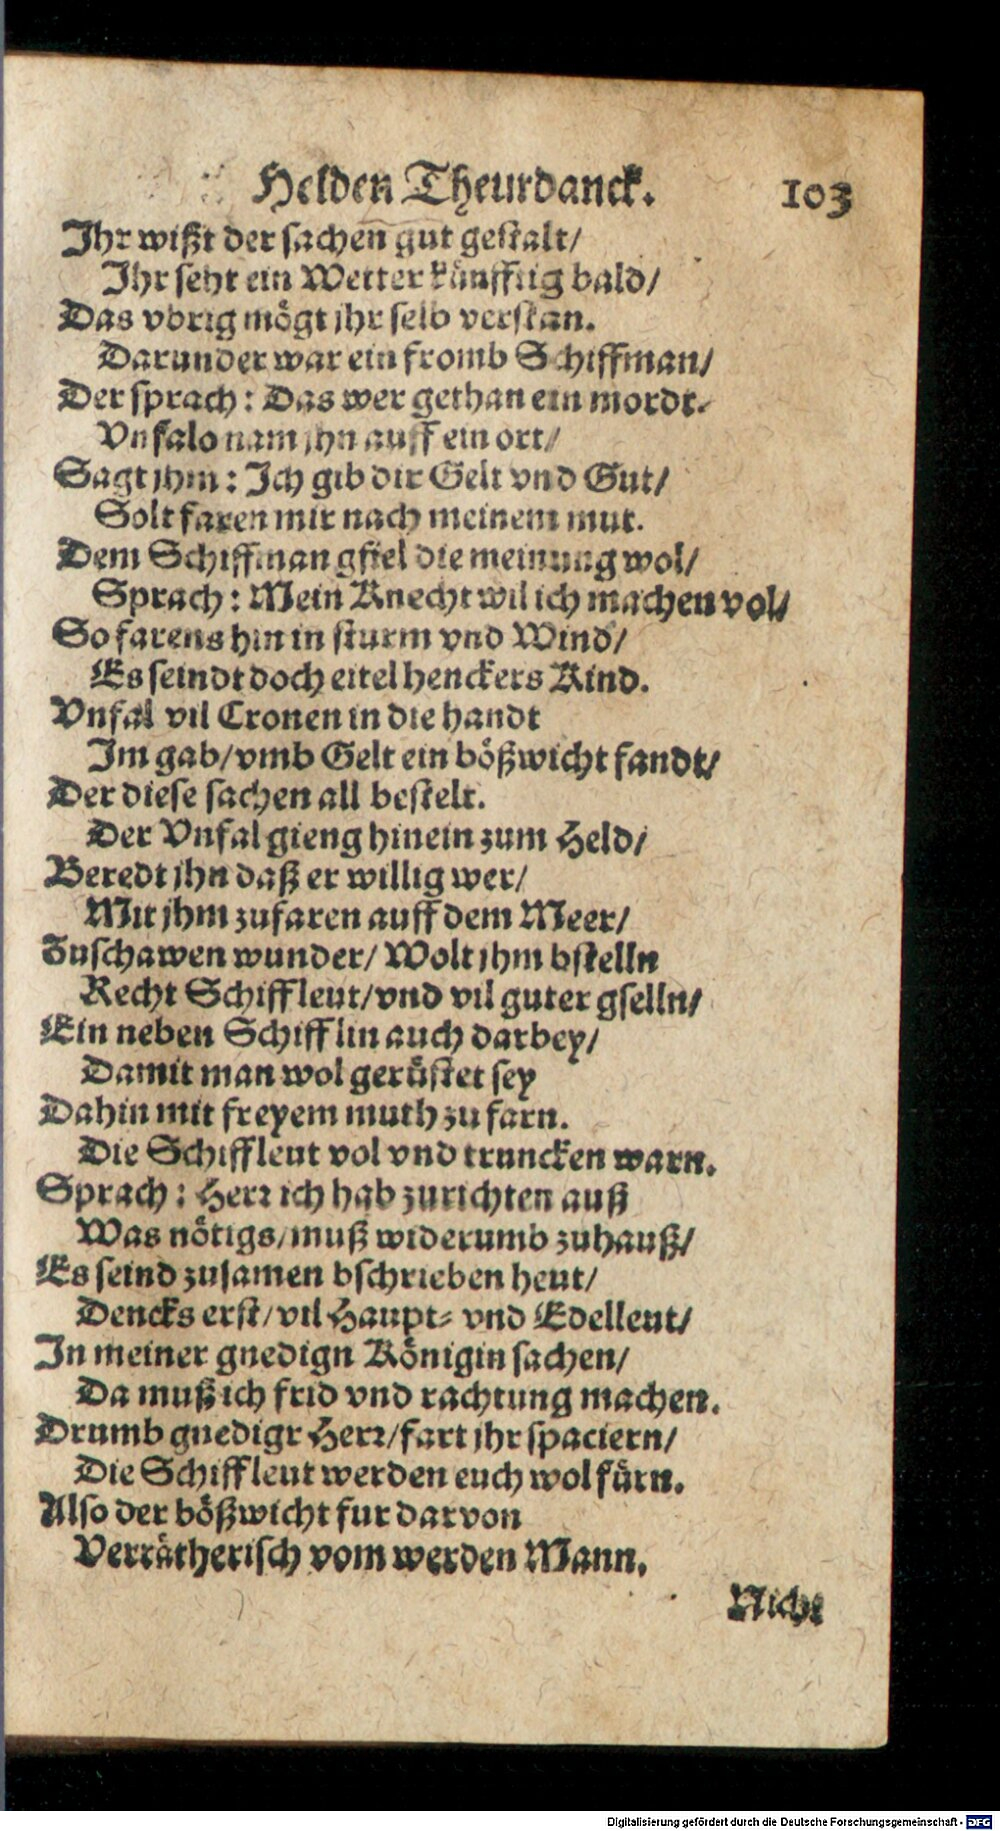 Helden Theurdanck. 103
Ihr wißt der sachen gut gestalt/
Ihr seht ein Wetter künfftig bald/
Das vbrig mögt jhr selb verstan.
Darunder war ein fromb Schiffman/
Der sprach: Das wer gethan ein mordt.
Vnfalo nam jhn auff ein ort/
Sagt jhm: Ich gib dir Gelt vnd Gut/
Solt faren mir nach meinem mut.
Dem Schiffman gfiel die meinung wol/
Sprach: Mein Knecht wil ich machen vol/
So farens hin in sturm vnd Wind/
Es seindt doch eitel henckers Kind.
Vnfal vil Cronen in die handt
Im gab/vmb Gelt ein bößwicht fandt/
Der diese sachen all bestelt.
Der Vnfal gieng hinein zum Held/
Beredt jhn daß er willig wer/
Mit jhm zufaren auff dem Meer/
Zuschawen wunder/ Wolt jhm bstelln
Recht Schiffleut/vnd vil guter gselln/
Ein neben Schifflin auch darbey/
Damit man wol gerüstet sey
Dahin mit freyem muth zu farn.
Die Schiffleut vol vnd truncken warn.
Sprach: Herr ich hab zurichten auß
Was nötigs/muß widerumb zuhauß/
Es seind zusamen bschrieben heut/
Dencks erst/vil Haupt- vnd Edelleut/
In meiner gnedign Königin sachen/
Da muß ich frid vnd rachtung machen.
Drumb gnedigr Herr/fart jhr spaciern/
Die Schiffleut werden euch wol fürn.
Also der bößwicht fur darvon
Verrätherisch vom werden Mann.
Nicht
Digitalisierung gefördert durch die Deutsche Forschungsgemeinschaft - DFG